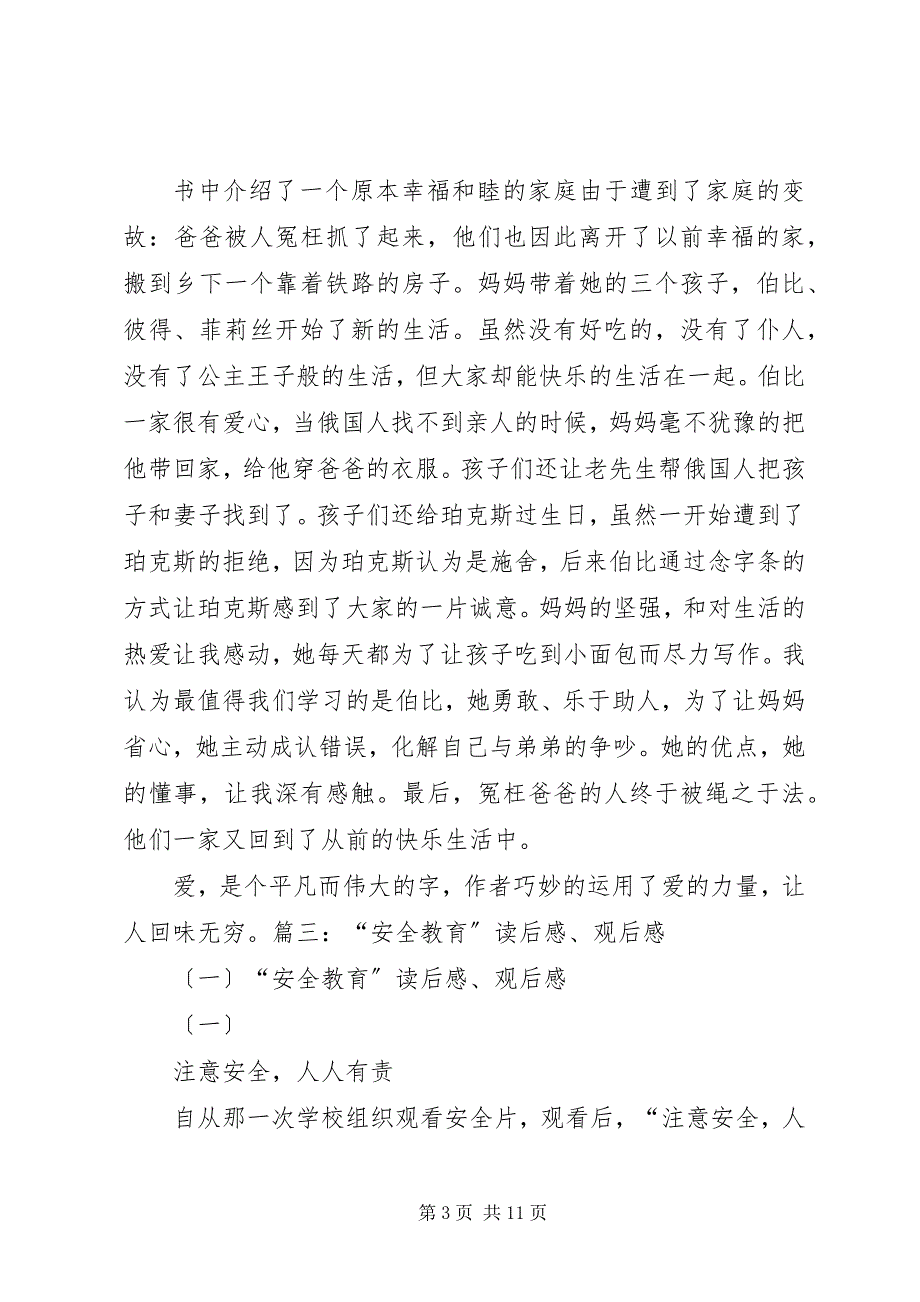 书中介绍了一个原本幸福和睦的家庭由于遭到了家庭的变
故：爸爸被人冤枉抓了起来，他们也因此离开了以前幸福的家，
搬到乡下一个靠着铁路的房子。妈妈带着她的三个孩子，伯比、
彼得、菲莉丝开始了新的生活。虽然没有好吃的，没有了仆人，
没有了公主王子般的生活，但大家却能快乐的生活在一起。伯比
一家很有爱心，当俄国人找不到亲人的时候，妈妈毫不犹豫的把
他带回家，给他穿爸爸的衣服。孩子们还让老先生帮俄国人把孩
子和妻子找到了。孩子们还给珀克斯过生日，虽然一开始遭到了
珀克斯的拒绝，因为珀克斯认为是施舍，后来伯比通过念字条的
方式让珀克斯感到了大家的一片诚意。妈妈的坚强，和对生活的
热爱让我感动，她每天都为了让孩子吃到小面包而尽力写作。我
认为最值得我们学习的是伯比，她勇敢、乐于助人，为了让妈妈
省心，她主动成认错误，化解自己与弟弟的争吵。她的优点，她
的懂事，让我深有感触。最后，冤枉爸爸的人终于被绳之于法。
他们一家又回到了从前的快乐生活中。
爱，是个平凡而伟大的字，作者巧妙的运用了爱的力量，让
人回味无穷。篇三：“安全教育〞读后感、观后感
〔一〕“安全教育〞读后感、观后感
〔一〕
注意安全，人人有责
自从那一次学校组织观看安全片，观看后，“注意安全，人
第 3 页 共 11 页